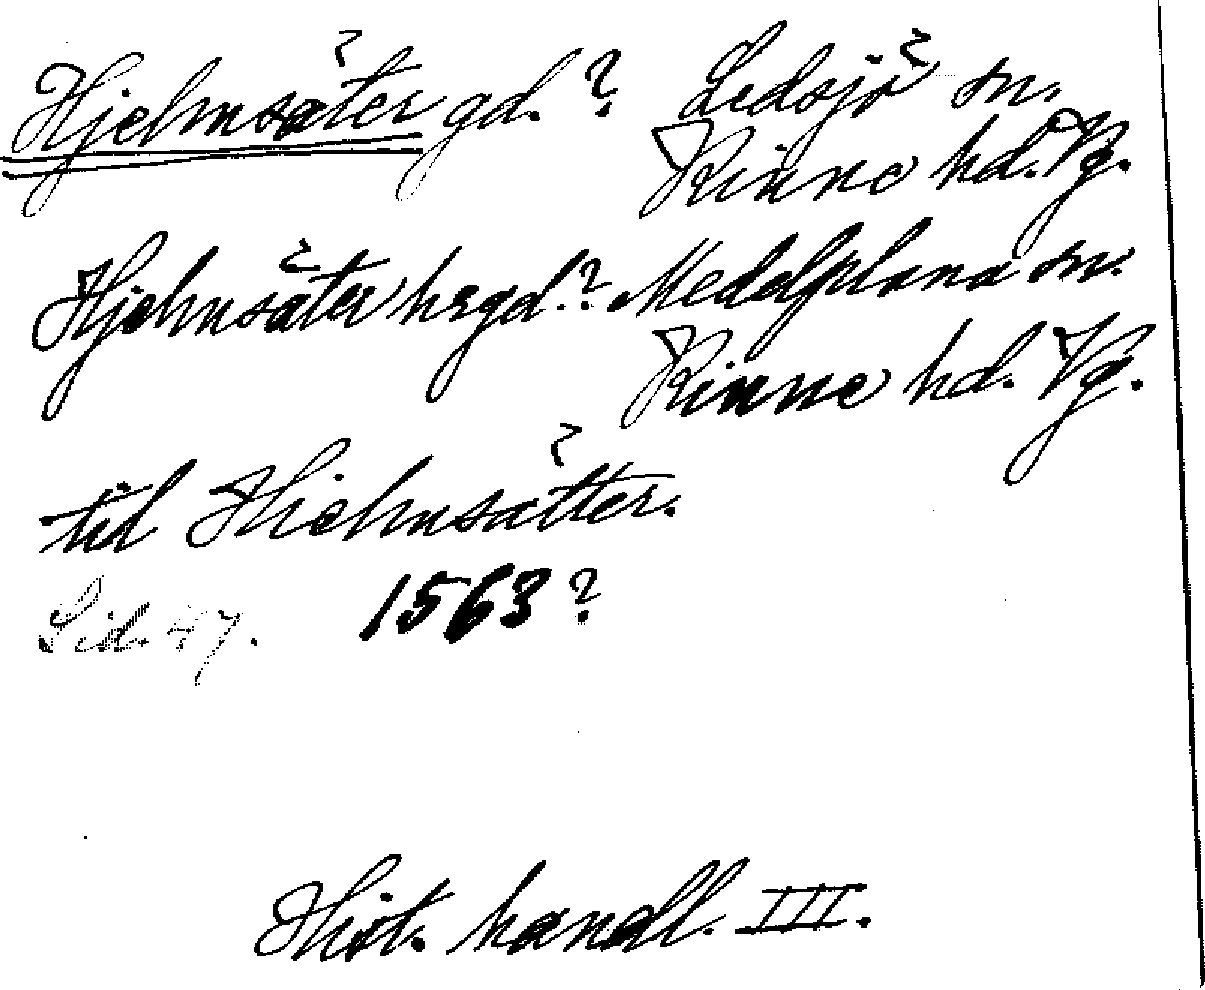 Hjelmsäter gd. ? Ledsjö sn.
Kinne hd. Vg.
Hjelmsäter hrgd.? Medelplana sn.
Kinne hd. Vg.
til Hielmsätter.
Sid. 47. 1563?
Hist. handl. III.